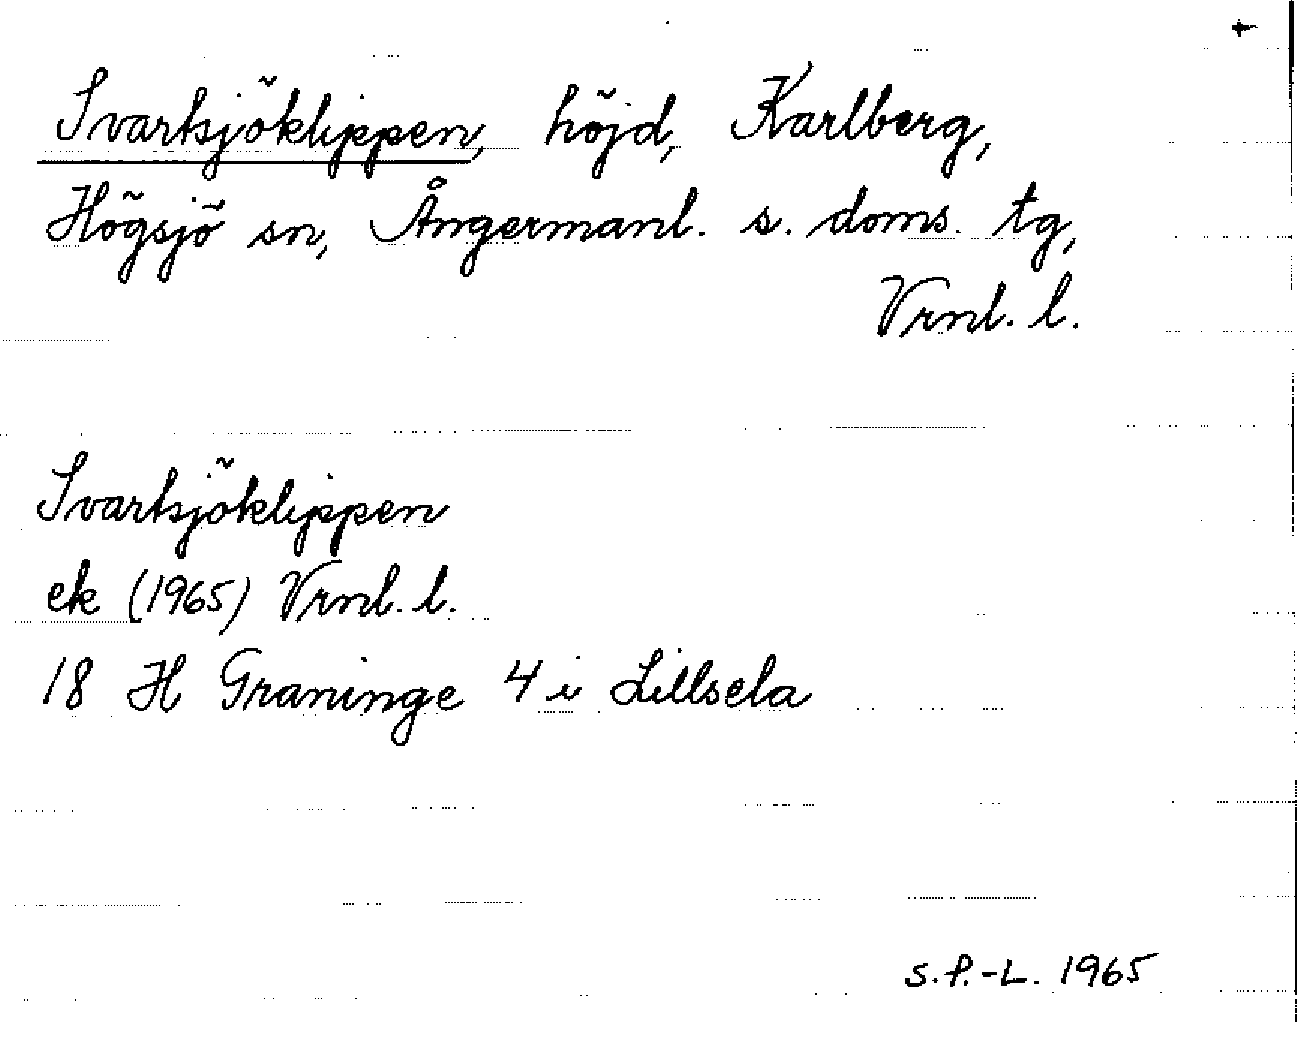 Svartsjöklippen, höjd, Karlberg,
Högsjö sn, Ångermanl. s. doms. tg,
Vrnl. l.
Svartsjöklippen
ek (1965) Vrnl. l.
18 H Graninge 4 i Lillsela
S.P.-L. 1965